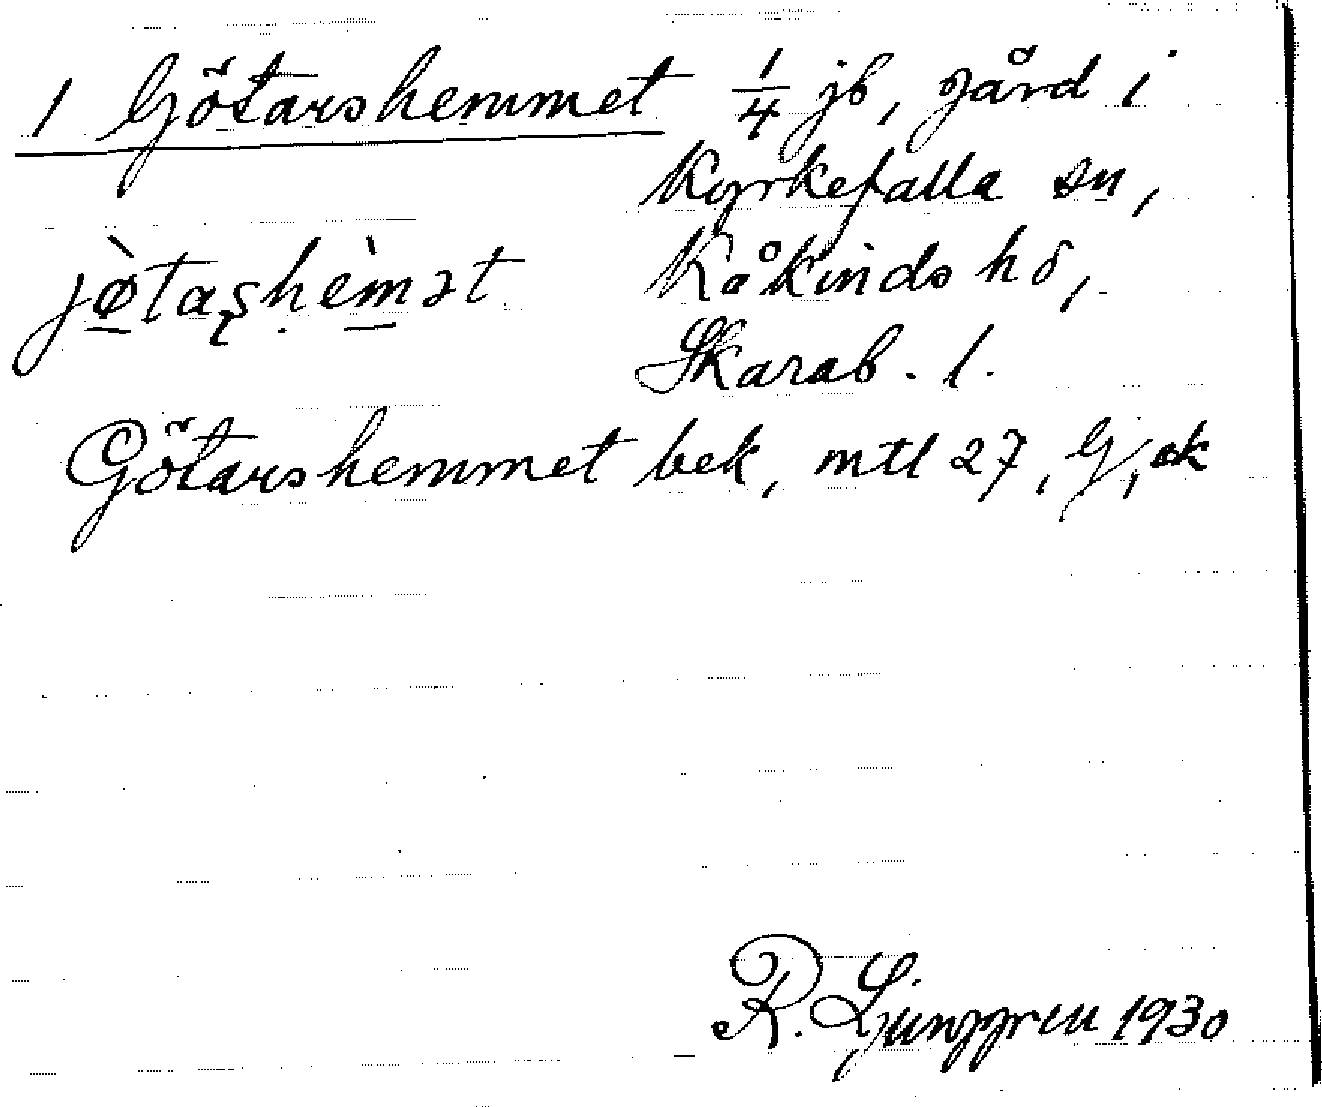 1 Götarshemmet 1/4 jb, gård i
Kyrkefalla sn,
jø̀taʂhèmət Kåkinds hd,
Skarab. l.
Götarshemmet bek, mtl 27, G, ek
R. Ljunggren 1930